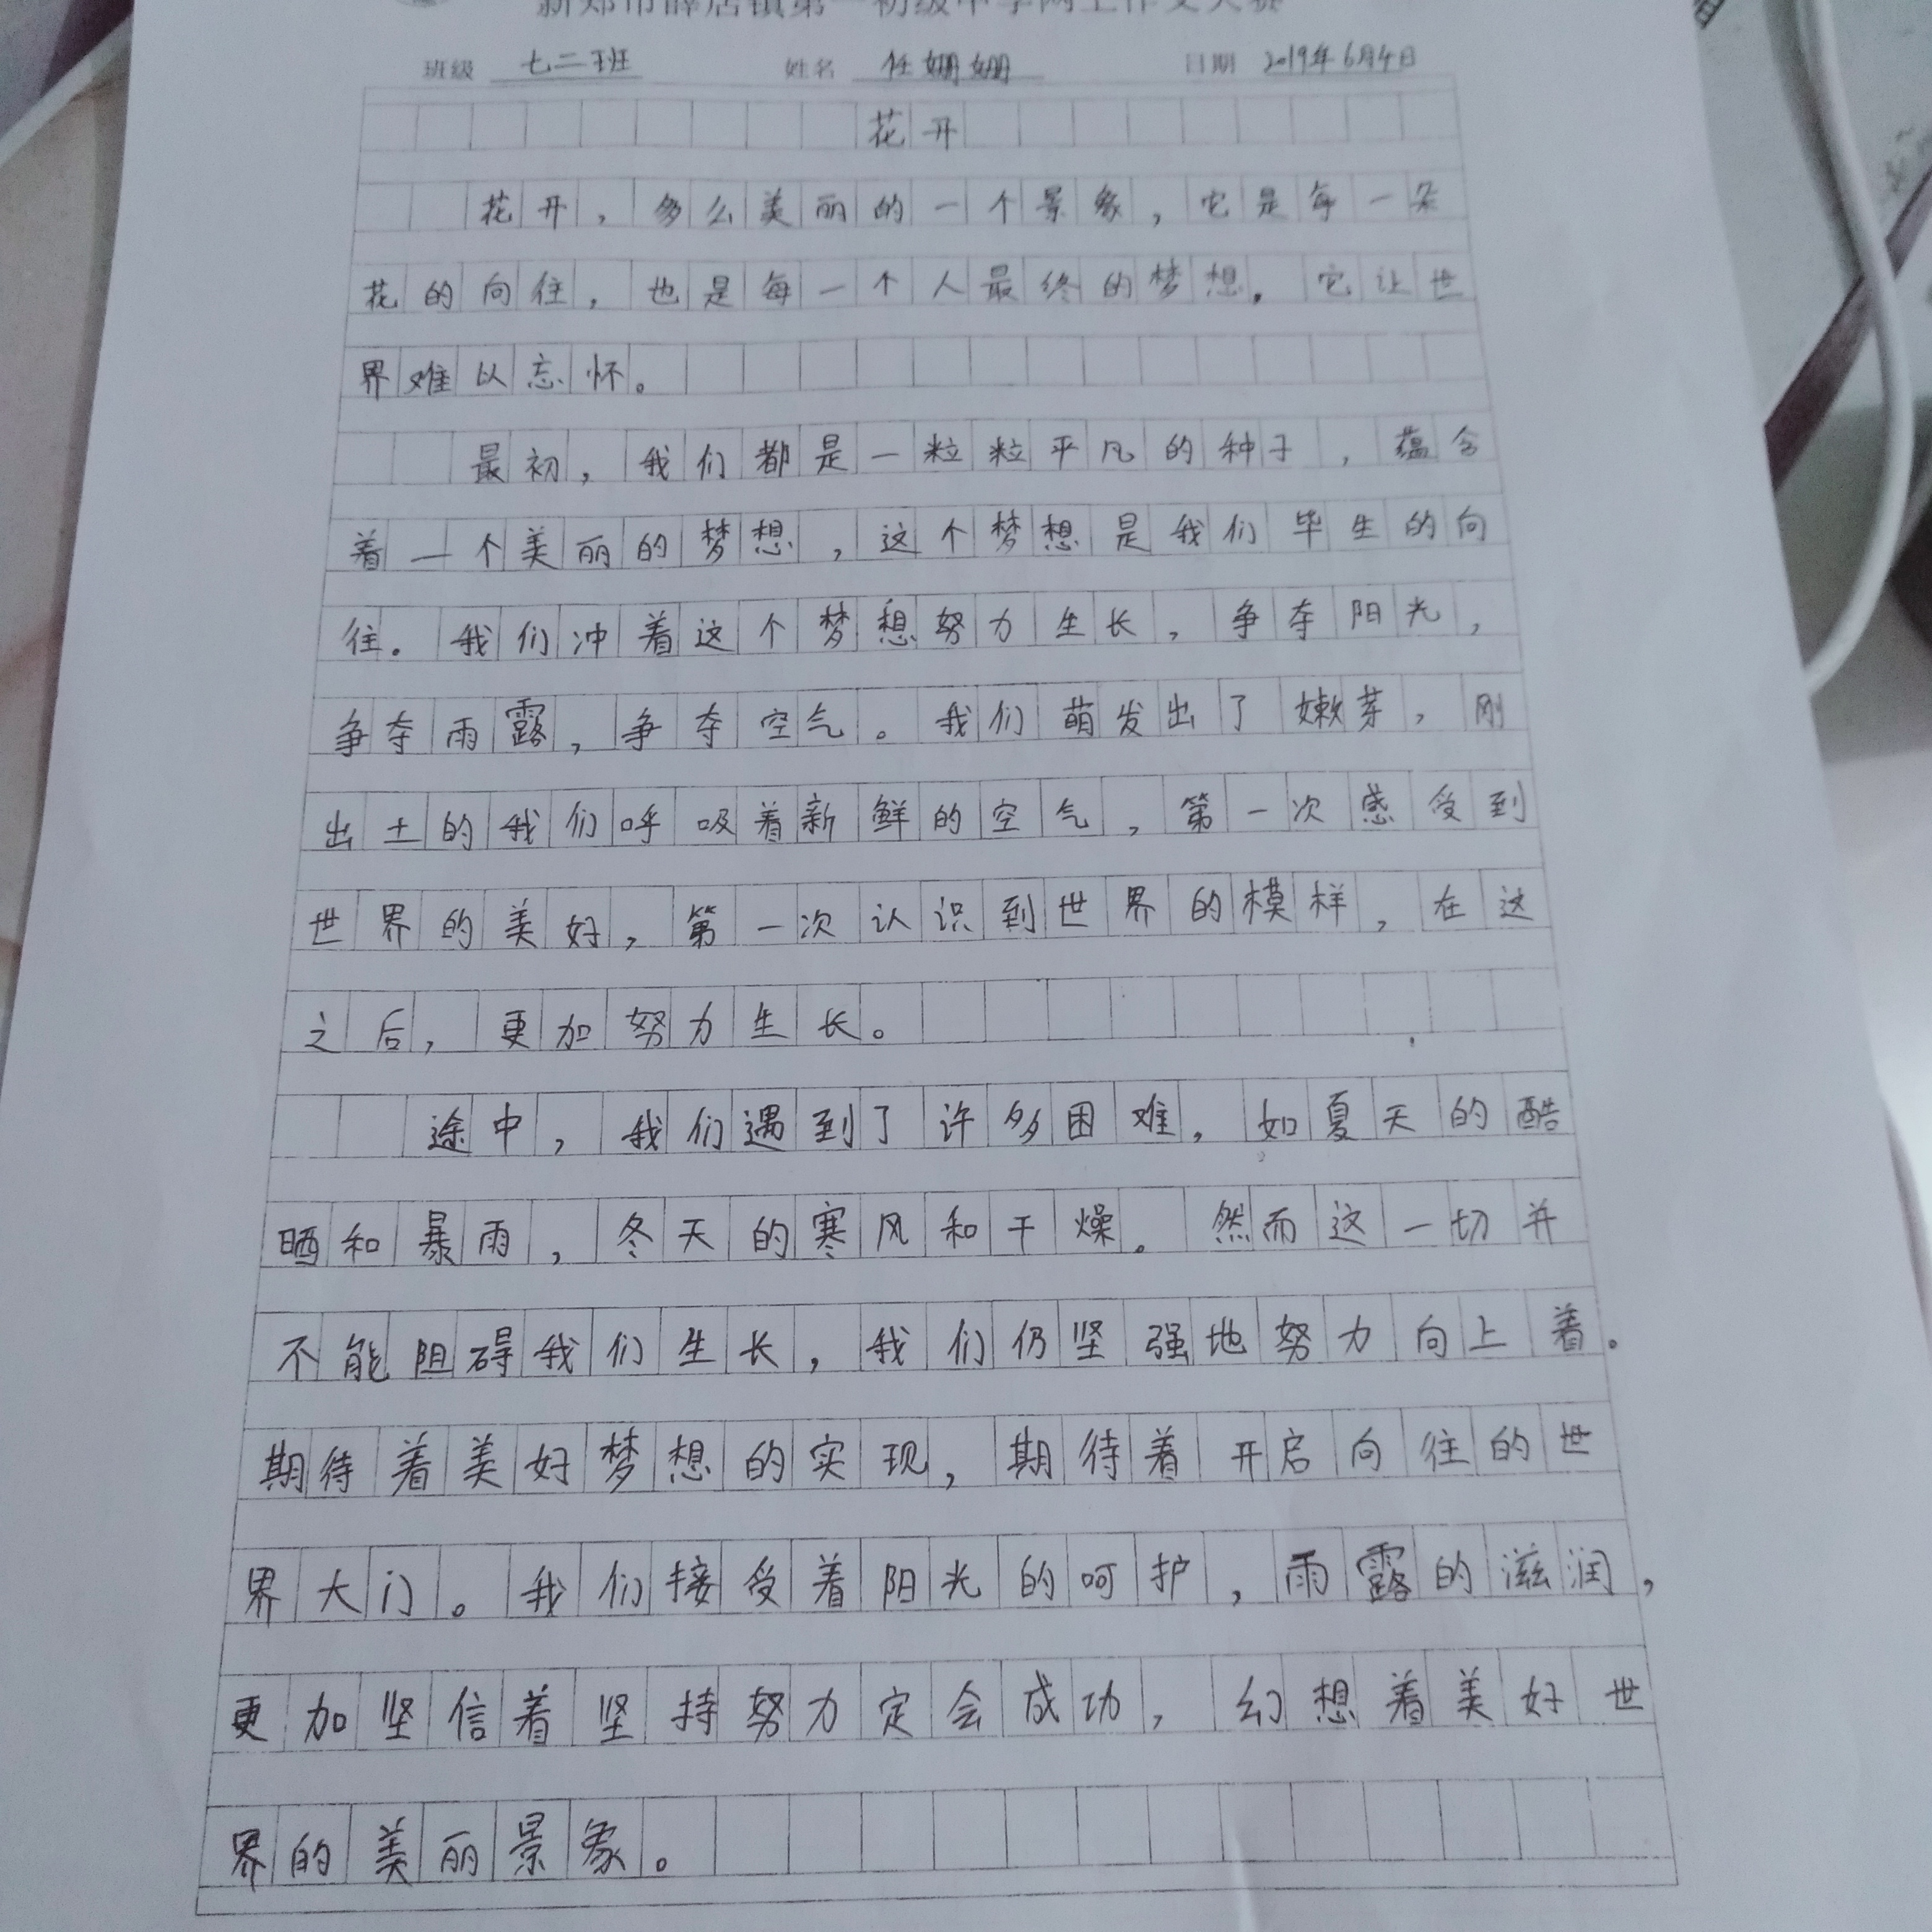 新郑市薛店镇第一初级中学网上作文大赛
班级 七二班 姓名 任姗姗 日期 2019年6月4日
花开
花开，多么美丽的一个景象，它是每一朵
花的向往，也是每一个人最终的梦想，它让世
界难以忘怀。
最初，我们都是一粒粒平凡的种子，蕴含
着一个美丽的梦想，这个梦想是我们毕生的向
往。我们冲着这个梦想努力生长，争夺阳光，
争夺雨露，争夺空气。我们萌发出了嫩芽，刚
出土的我们呼吸着新鲜的空气，第一次感受到
世界的美好，第一次认识到世界的模样，在这
之后，更加努力生长。
途中，我们遇到了许多困难，如夏天的酷
晒和暴雨，冬天的寒风和干燥。然而这一切并
不能阻碍我们生长，我们仍坚强地努力向上着。
期待着美好梦想的实现，期待着开启向往的世
界大门。我们接受着阳光的呵护，雨露的滋润，
更加坚信着坚持努力定会成功，幻想着美好世
界的美丽景象。